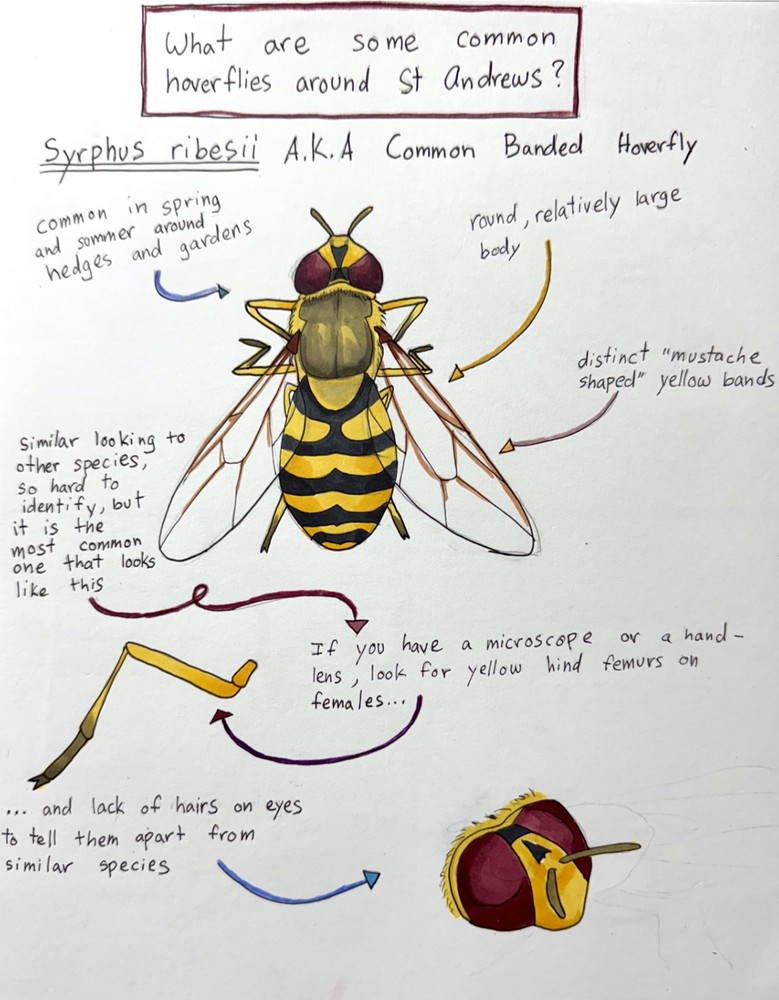 What are some common
hoverflies around St Andrews?
Syrphus ribesii A.K.A Common Banded Hoverfly
common in spring
and sommer around
hedges and gardens
round, relatively large
body
distinct "mustache
shaped" yellow bands
Similar looking to
other species,
so hard to
identify, but
it is the
most common
one that looks
like this
If you have a microscope or a hand-
lens, look for yellow hind femurs on
females...
... and lack of hairs on eyes
to tell them apart from
similar species